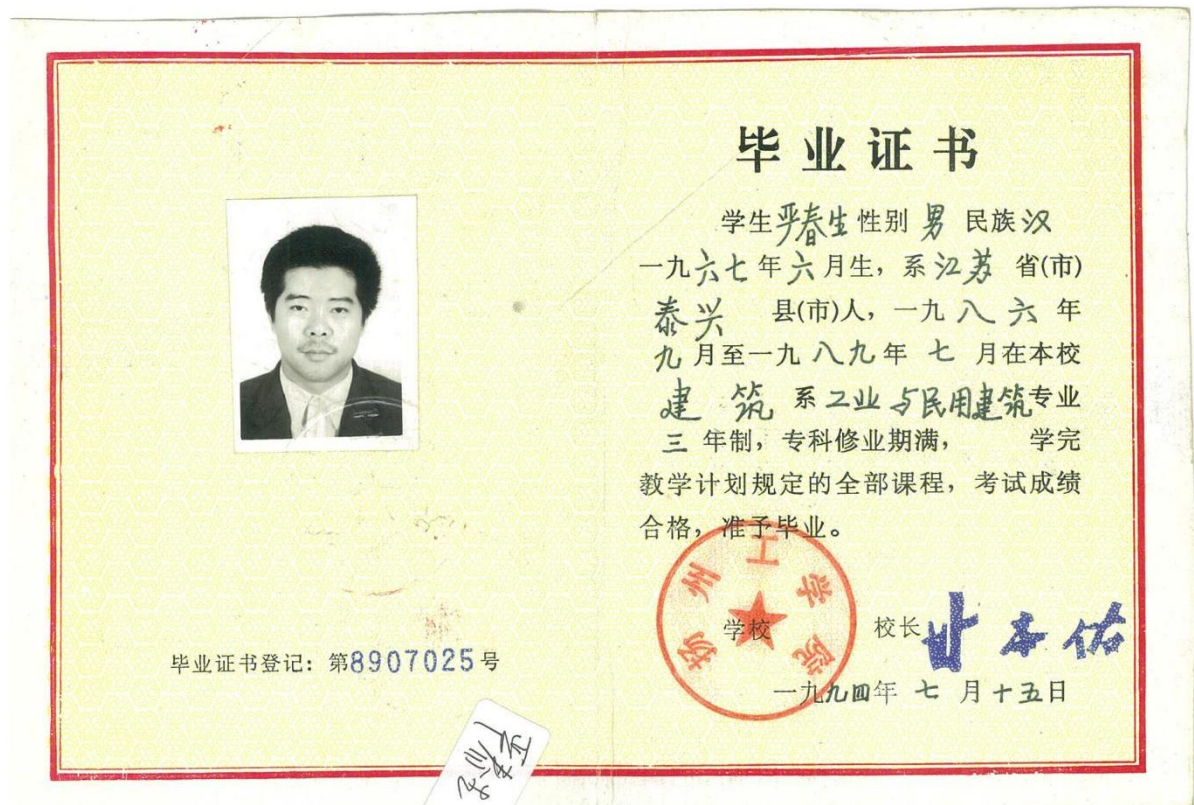 毕业证书
学生严春生性别男民族汉
一九六七年六月生，系江苏省(市)
泰兴县(市)人，一九八六年
九月至一九八九年七月在本校
建筑系工业与民用建筑专业
三年制，专科修业期满，学完
教学计划规定的全部课程，考试成绩
合格，准予毕业。
扬州工学院
学校 校长 本佑
一九九四年七月十五日
毕业证书登记：第8907025号